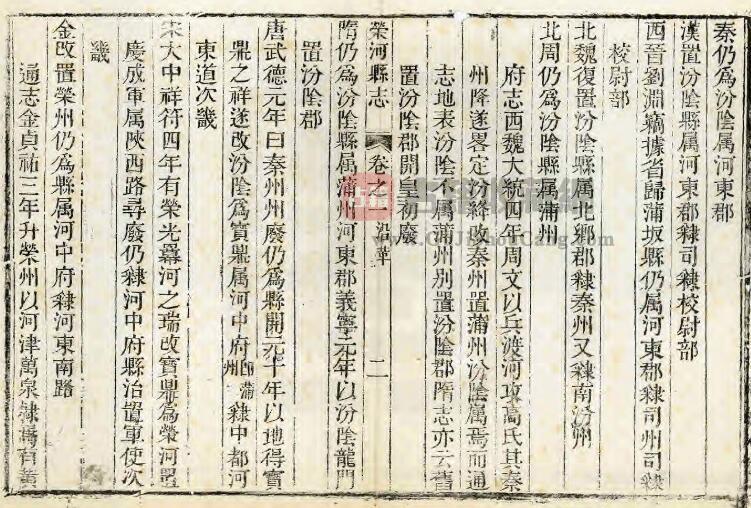 秦仍為汾陰属河東郡
漢置汾陰縣属河東郡隸司隸校尉部
西晉劉淵竊據省歸蒲坂縣仍属河東郡隸司州司隸
校尉部
北魏復置汾陰縣属北鄉郡隸秦州又隸南汾州
北周仍為汾陰縣属蒲州
府志西魏大統四年周文以兵渡河攻高氏其秦
州降遂畧定汾絳改秦州置蒲州汾陰属焉而通
志地表汾陰不属蒲州別置汾陰郡隋志亦云舊
置汾陰郡開皇初廢
榮河縣志 卷之一 沿革 二
隋仍為汾陰縣属蒲州河東郡義寧元年以汾陰龍門
置汾陰郡
唐武德元年曰秦州州廢仍為縣開元十年以地得寶
鼎之祥遂改汾陰為寶鼎属河中府即蒲州隸中都河
東道次畿
宋大中祥符四年有榮光羃河之瑞改寶鼎為榮河置
慶成軍属陝西路尋廢仍隸河中府縣治置軍使次
畿
金改置榮州仍為縣属河中府隸河東南路
通志金貞祐三年升榮州以河津萬泉隸焉有黃